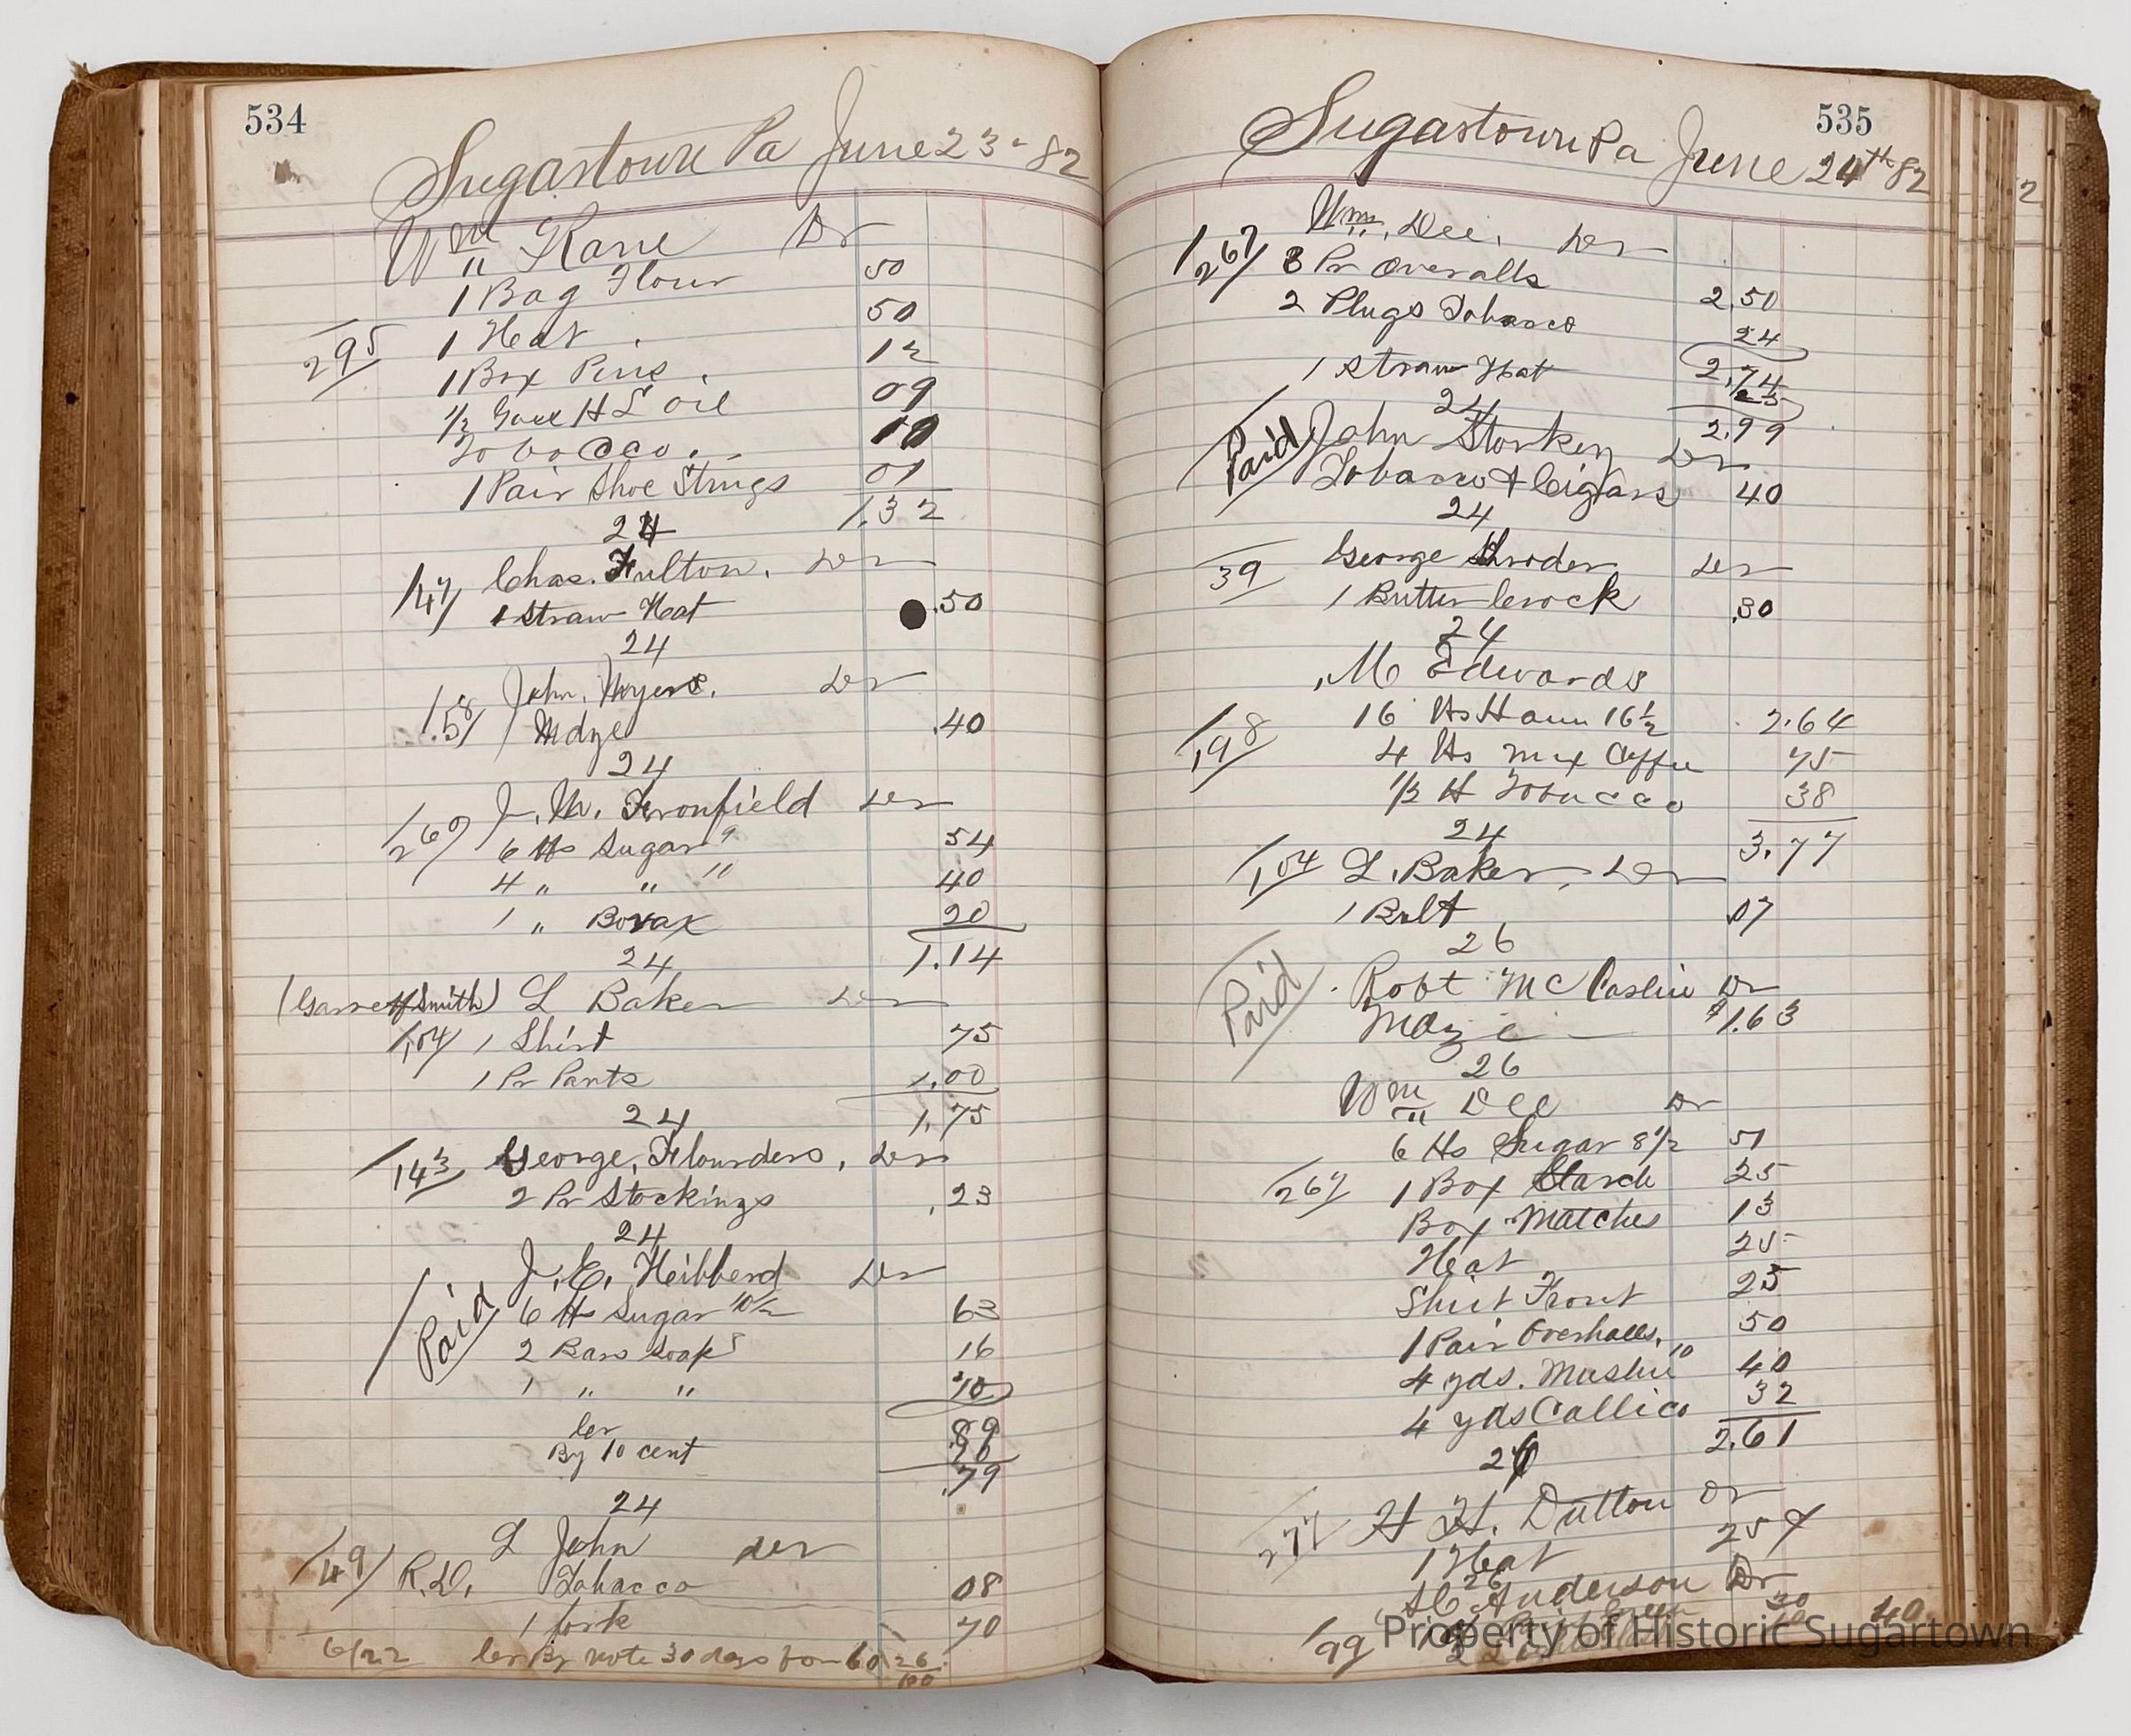 534
Sugartown Pa June 23-82
Wm Kane Dr
1 Bag Flour 50
295 1 Heat 50
1 Box Pins 12
1/2 Gall H L Oil 09
Tobacco 10
1 Pair Shoe Strings 01
1.32
24
147 Chas. Fulton. Dr
1 Straw Hat .50
24
John Myers. Dr
158 Mdze .40
24
269 J. M. Fronfield Dr
6 lbs Sugar 9 54
4 " " " 40
1 " Borax 20
24 1.14
(Garrett Smith) L Baker Dr
104 1 Shirt 75
1 Pr Pants 1.00
24 1.75
143 George Flounders, Dr
2 Pr Stockings .23
24
Paid J. E. Heibberd Dr
6 lbs Sugar 10 1/2 63
2 Bars Soap 8 16
1 " " 10
Cr 89
By 10 cent 10
.79
24
L John Dr
149 R.D. Tobacco 08
1 fork 70
6/22 Cr By note 30 days for 60 26
535
Sugartown Pa June 24th 82
Wm. Dee. Dr
267 3 Pr Overalls 2.50
2 Plugs Tobacco 24
2.74
1 Straw Hat 25
24 2.99
Paid John Storkey Dr
Tobacco & Cigars 40
24
39 George Shroder Dr
1 Butter Crock .30
24
M Edwards
16 lbs Ham 16 1/2 2.64
198 4 lbs mix Coffee 75
1/2 lb Tobacco 38
24 3.77
104 L. Baker, Dr
1 Belt .07
26
Paid Robt McCaslin Dr
Mdze $1.63
26
Wm Dee Dr
6 lbs Sugar 8 1/2 51
267 1 Box Starch 25
Box Matches 13
Heat 25
Shirt Front 25
1 Pair Overhalls, 50
4 yds. Muslin 10 40
4 yds Callico 32
26 2.61
277 H H. Dutton Dr
1 Heat 25
26
Anderson Dr
199 30 10 40
Property of Historic Sugartown